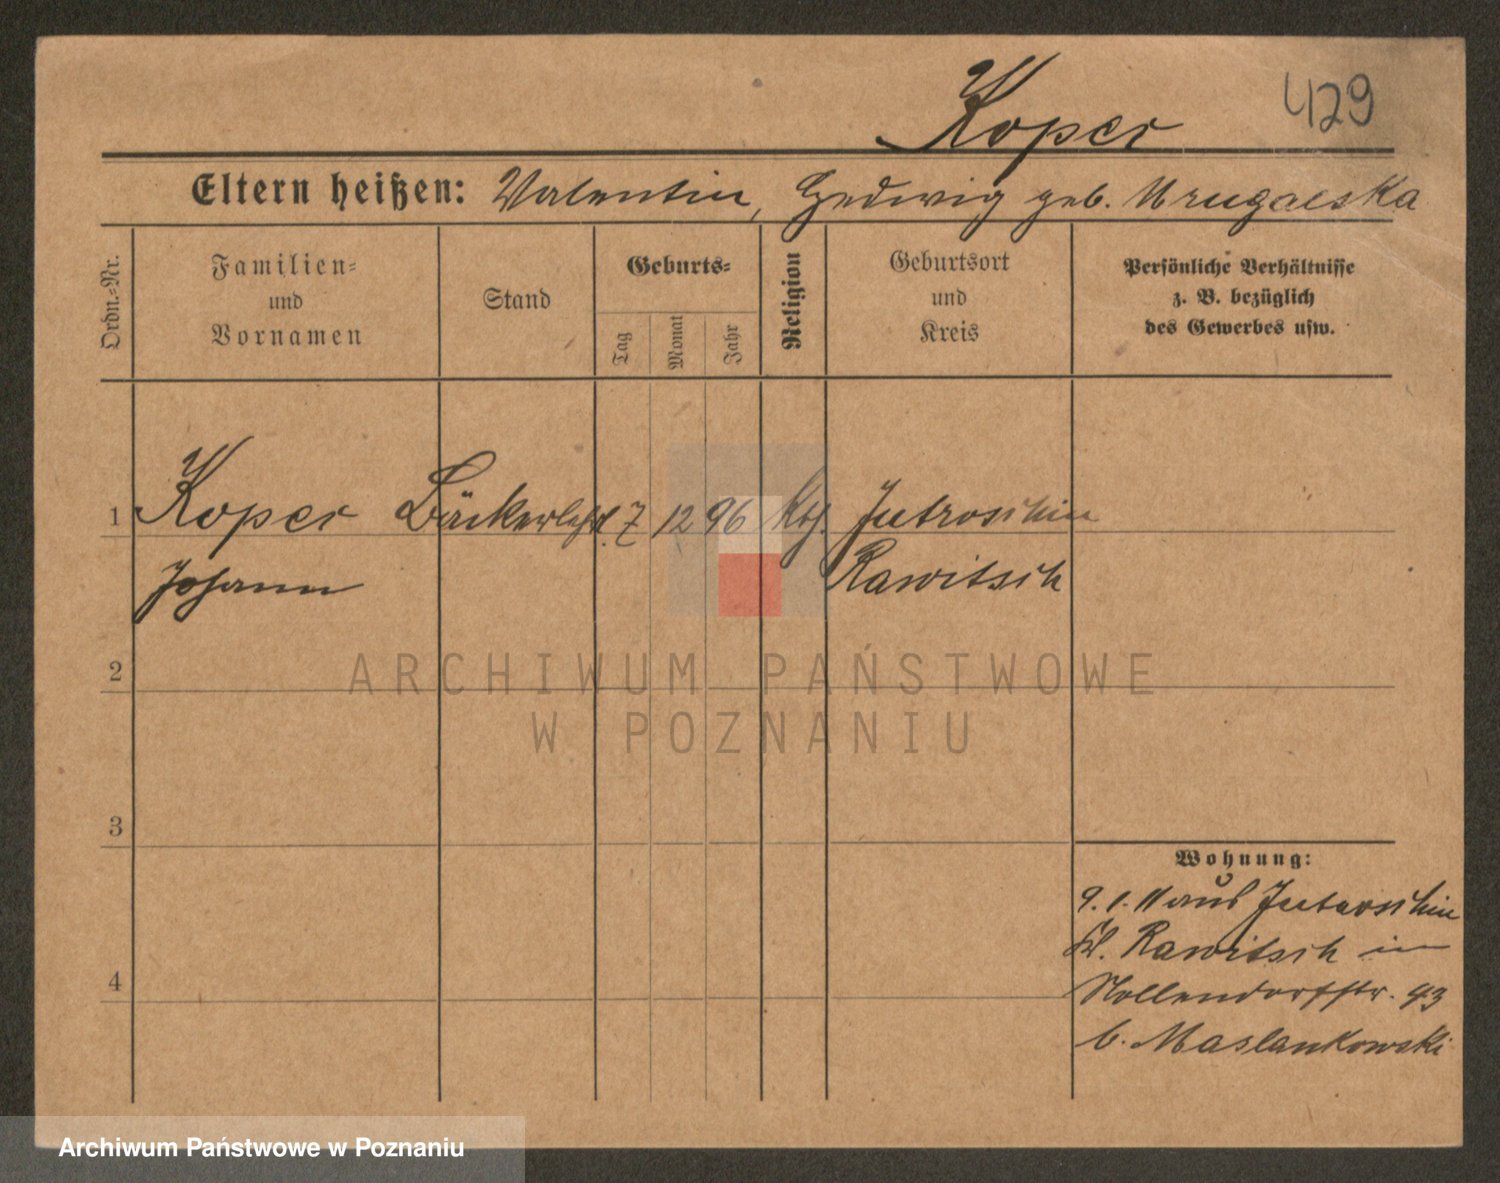 Koper
429
Eltern heißen: Valentin, Hedwig geb.
Ordn.=Nr.
Familien=
und
Vornamen
Stand
Geburts=
Tag
Monat
Jahr
Religion
Geburtsort
und
Kreis
Persönliche Verhältnisse
z. B. bezüglich
des Gewerbes usw.
1 Koper Bäckerlehrl. 7 12 96 Kth. Jutroschin
Johann Rawitsch
2
ARCHIWUM PAŃSTWOWE
W POZNANIU
3
Wohnung:
9. 1. 11 aus Jutroschin
Kr. Rawitsch in
4
Nollendorfstr. 43
b. Maslankowski
Archiwum Państwowe w Poznaniu